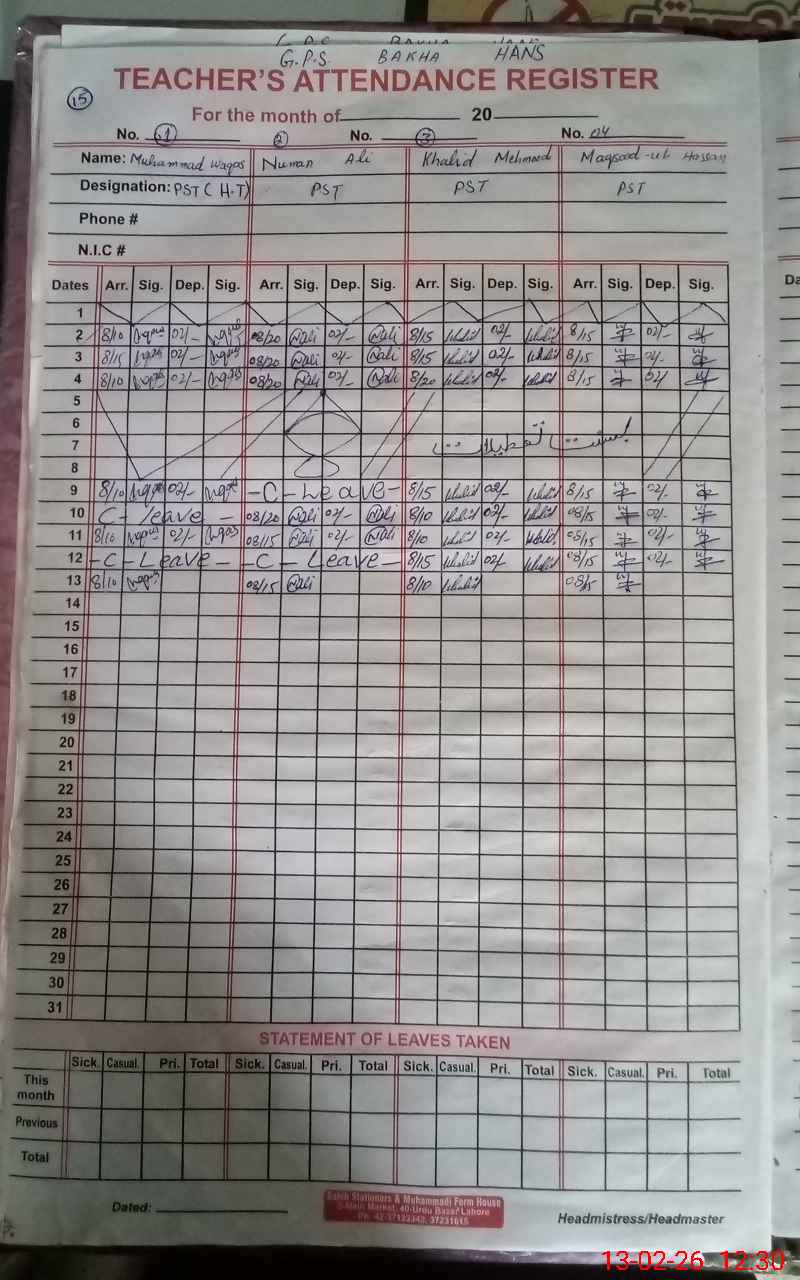 G.P.S. BAKHA HANS
TEACHER'S ATTENDANCE REGISTER
15
For the month of 20
No. 1 2 No. 3 No. 04
Name: Muhammad Waqas Numan Ali Khalid Mehmood Maqsood-ul-Hassan
Designation: PST (H.T) PST PST PST
Phone #
N.I.C #
Dates Arr. Sig. Dep. Sig. Arr. Sig. Dep. Sig. Arr. Sig. Dep. Sig. Arr. Sig. Dep. Sig.
1
2 8/10 Waqas 02/- Waqas 08/20 Nali 02/- Nali 8/15 Khalid 02/- Khalid 8/15 02/-
3 8/15 Waqas 02/- Waqas 08/20 Nali 02/- Nali 8/15 Khalid 02/- Khalid 8/15 02/-
4 8/10 Waqas 02/- Waqas 08/20 Nali 02/- Nali 8/20 Khalid 02/- Khalid 8/15 02/
5
6
7 بسنت تعطیلات
8
9 8/10 Waqas 02/- Waqas -C-Leave- 8/15 Khalid 02/- Khalid 8/15 02/-
10 C-leave- 08/20 Nali 02/- Nali 8/10 Khalid 02/- Khalid 08/15 02/-
11 8/10 Waqas 02/- Waqas 08/15 Nali 02/- Nali 8/10 Khalid 02/- Khalid 08/15 02/-
12 -C-Leave- -C-Leave- 8/15 Khalid 02/- Khalid 08/15 02/-
13 8/10 Waqas 08/15 Nali 8/10 Khalid 08/15
14
15
16
17
18
19
20
21
22
23
24
25
26
27
28
29
30
31
STATEMENT OF LEAVES TAKEN
Sick. Casual. Pri. Total Sick. Casual. Pri. Total Sick. Casual. Pri. Total Sick. Casual. Pri. Total
This month
Previous
Total
Dated:
Stationers & Muhammadi Form House
Main Market, 40-Urdu Bazar Lahore
Headmistress/Headmaster
13-02-26 12:30